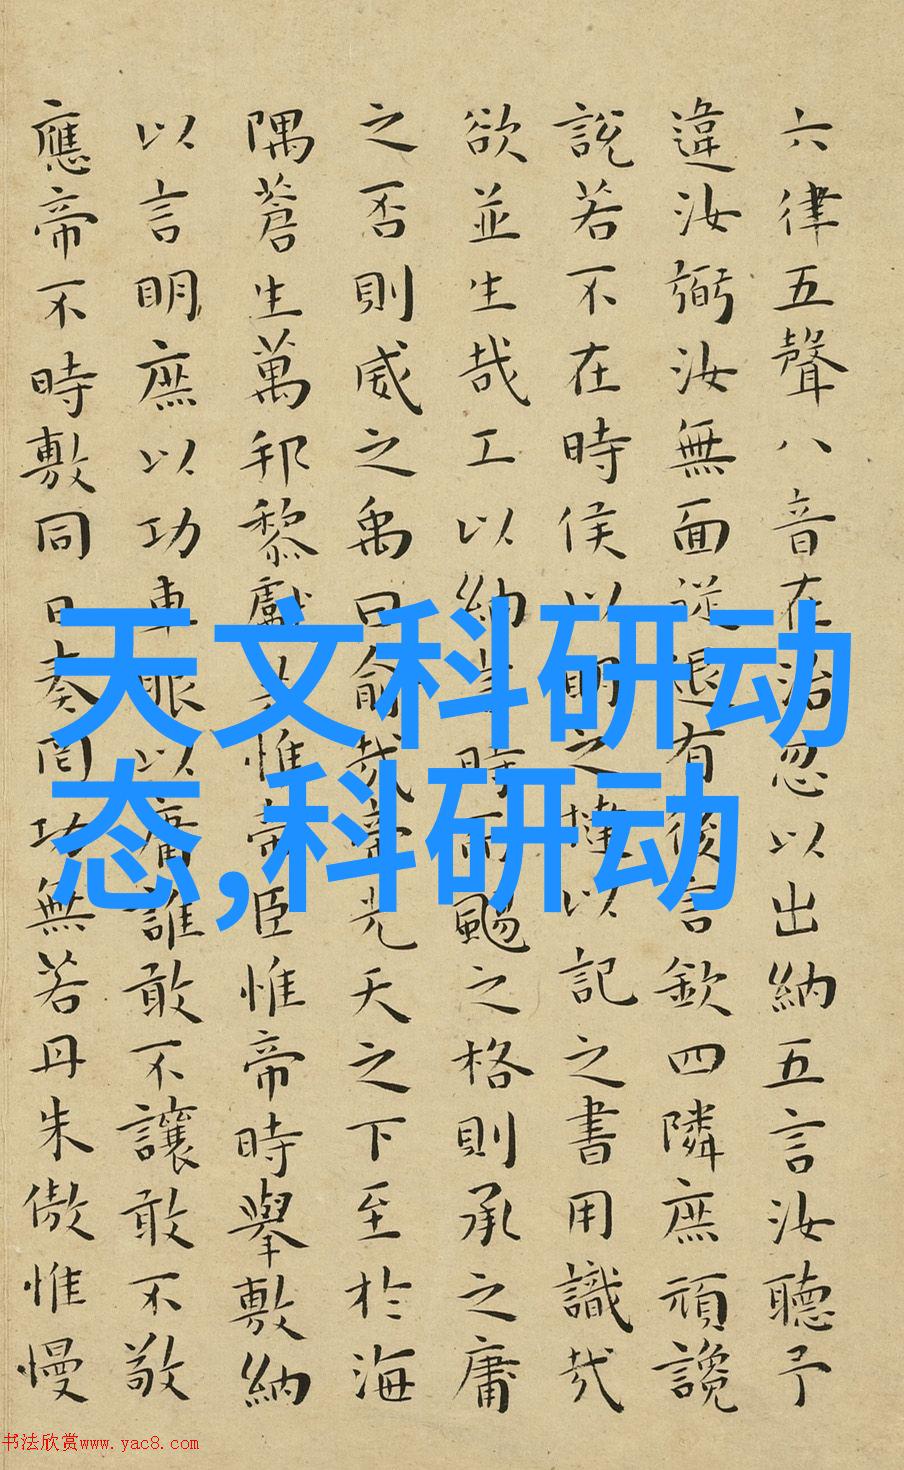 六律五聲八音在治忽以出納五言汝聽予
違汝弼汝無面從退有後言欽四隣庶頑讒
說若不在時侯以明之撻以記之書用識哉
欲並生哉工以納言時而颺之格則承之庸
之否則威之禹曰俞哉帝光天之下至於海
隅蒼生萬邦黎獻共惟帝臣惟帝時舉敷納
以言明庶以功車服以庸誰敢不讓敢不敬
應帝不時敷同日奏罔功無若丹朱傲惟慢
天文科研动
态,科研动
书法欣赏www.yac8.com